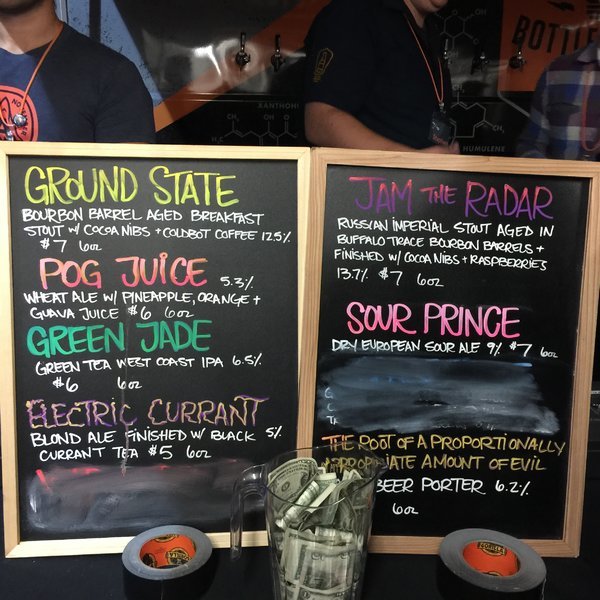 BOTTLE
XANTHOHU
HUMULENE
GROUND STATE
BOURBON BARREL AGED BREAKFAST
STOUT W/ COCOA NIBS + COLDBOT COFFEE 12.5%
$7 6oz
POG JUICE 5.3%
WHEAT ALE W/ PINEAPPLE, ORANGE +
GUAVA JUICE $6 6oz
GREEN JADE
GREEN TEA WEST COAST IPA 6.5%
$6 6oz
ELECTRIC CURRANT
BLOND ALE FINISHED W/ BLACK 5%
CURRANT TEA $5 6oz
JAM THE RADAR
RUSSIAN IMPERIAL STOUT AGED IN
BUFFALO TRACE BOURBON BARRELS +
FINISHED W/ COCOA NIBS + RASPBERRIES
13.7% $7 6oz
SOUR PRINCE
DRY EUROPEAN SOUR ALE 9% $7 6oz
THE ROOT OF A PROPORTIONALLY
AMOUNT OF EVIL
BEER PORTER 6.2%
6oz